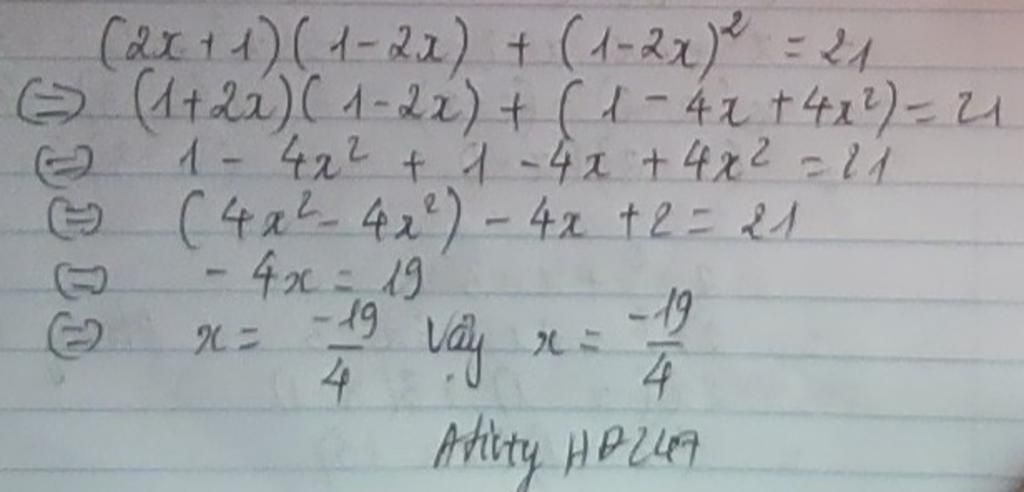 (2x+1)(1-2x) + (1-2x)² = 21
⇔ (1+2x)(1-2x) + (1 - 4x + 4x²) = 21
⇔ 1 - 4x² + 1 - 4x + 4x² = 21
⇔ (4x² - 4x²) - 4x + 2 = 21
⇔ - 4x = 19
⇔ x = -19/4 Vậy x = -19/4